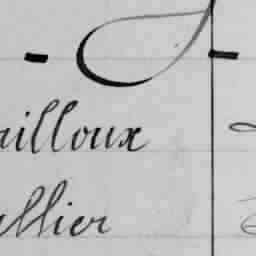 ailloux
ellier